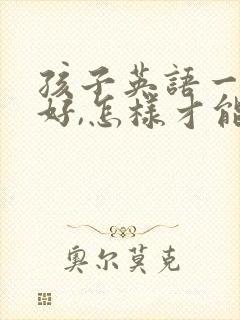 孩子英語一
好,怎樣才能
奥尔莫克